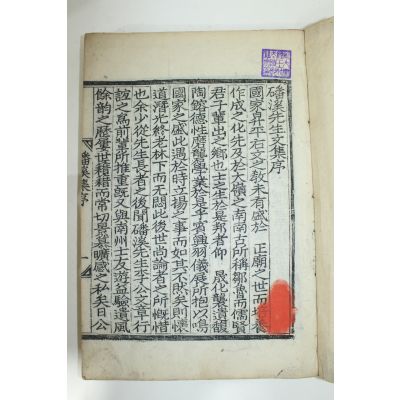 磻溪先生文集序
國家昇平右文之教未有盛於 正廟之世而培養
作成之化先及於大嶺之南南古所稱鄒魯而儒賢
君子輩出之鄕也士之生於是邦者仰 晟化襲遺馥
陶鎔德性磨礱學業於是乎賓興羽儀展所抱以鳴
國家之盛此遇於時立揚之事而如其不敗矣則懷
道潛光終老林下而无悶此後世尙論者之所慨惜
也余少從先生長者之後聞磻溪先生李公文章行
誼之爲前輩所推重旣又與南州士友遊益驗遺風
餘韵之歷屢世積稽而常切景慕曠感之私矣日公
磻溪集序 一